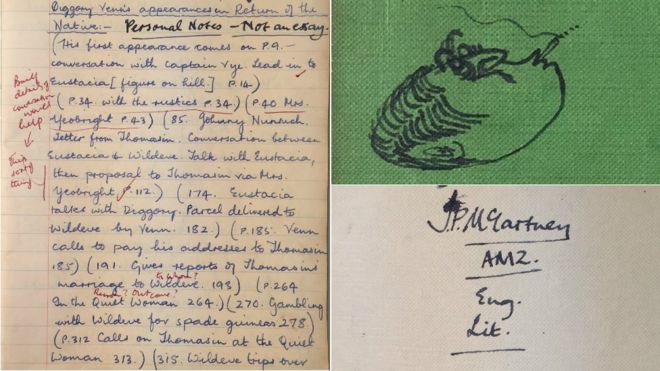 Diggory Venn's appearances in Return of the
Native:- Personal Notes - Not an essay.
(His first appearance comes on P.9. -
conversation with Captain Vye. Lead in to
Eustacia [figure on hill.] P.14)
(P.34. with the rustics P.34) (P.40 Mrs.
Yeobright P.43) (85. Johnny Nunsuch.
Letter from Thomasin. Conversation between
Eustacia & Wildeve. Talk with Eustacia,
then proposal to Thomasin via Mrs.
Yeobright P.112) (174. Eustacia
talks with Diggory. Parcel delivered to
Wildeve by Venn. 182.) (P.185. Venn
calls to pay his addresses to Thomasin
185) (191. Gives reports of Thomasin's
to whom?
marriage to Wildeve. 193) (P.264
Reason? Outcome?
In the Quiet Woman 264.) (270. Gambling
with Wildeve for spade guineas 278)
(P.312 Calls on Thomasin at the Quiet
Woman 313.) (315. Wildeve trips over
details of
conversation
would
help
this
sort of
thing
J.P. McCartney
AM2.
Eng.
Lit.